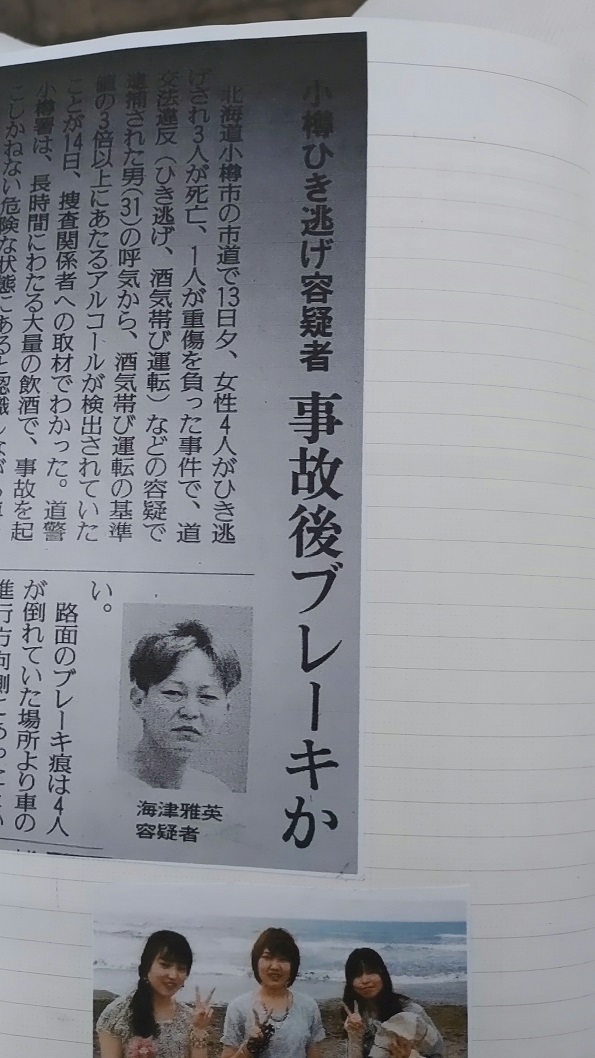 小樽ひき逃げ容疑者 事故後ブレーキか
北海道小樽市の市道で13日夕、女性4人がひき逃
げされ3人が死亡、1人が重傷を負った事件で、道
交法違反(ひき逃げ、酒気帯び運転)などの容疑で
逮捕された男(31)の呼気から、酒気帯び運転の基準
値の3倍以上にあたるアルコールが検出されていた
ことが14日、捜査関係者への取材でわかった。道警
小樽署は、長時間にわたる大量の飲酒で、事故を起
こしかねない危険な状態にあると認識しながら車
い。
路面のブレーキ痕は4人
が倒れていた場所より車の
進行方向側にあった
海津雅英
容疑者